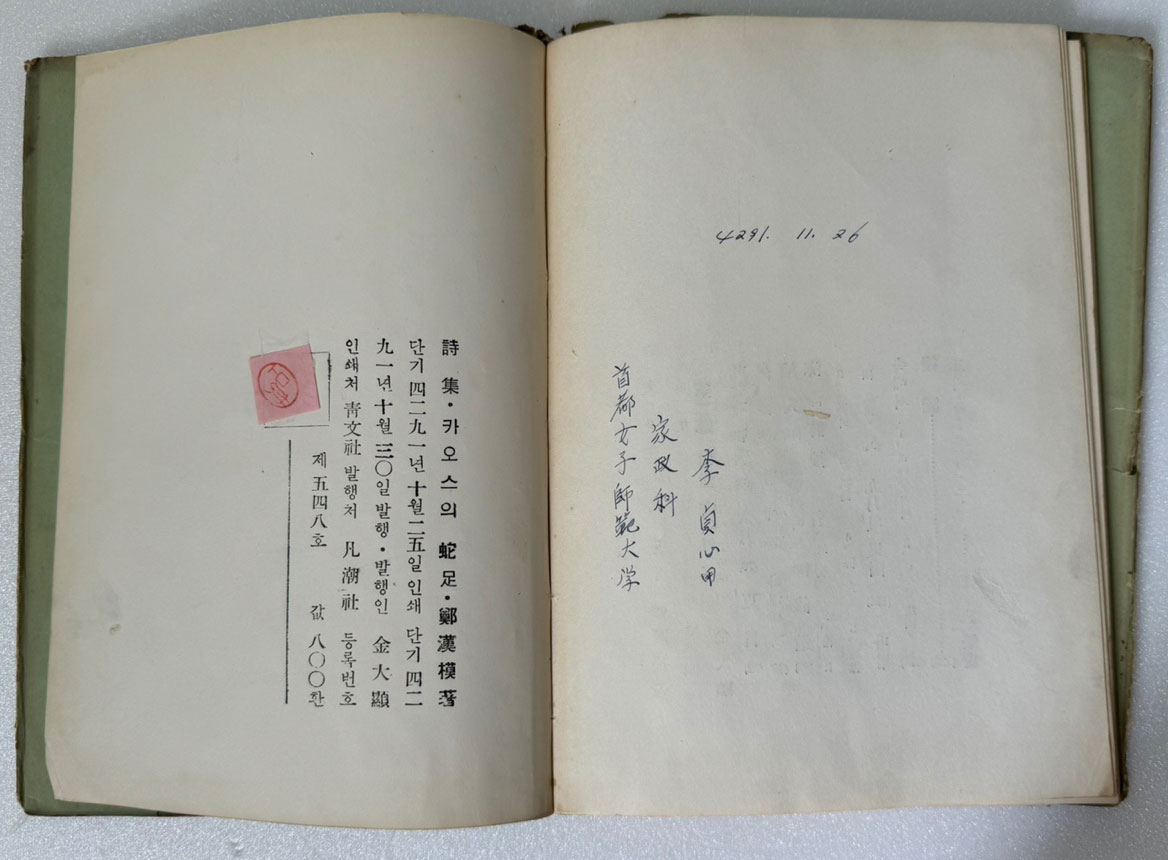 詩集·카오스의 蛇足·鄭漢模著
단기 四二九一년 十월 二五일 인쇄 단기 四二
九一년 十월 三〇일 발행·발행인 金大顯
인쇄처 靑文社 발행처 凡潮社 등록번호
제 五四八호 값 八〇〇환
4291. 11. 26
首都女子師範大学
家政科
李貞心用